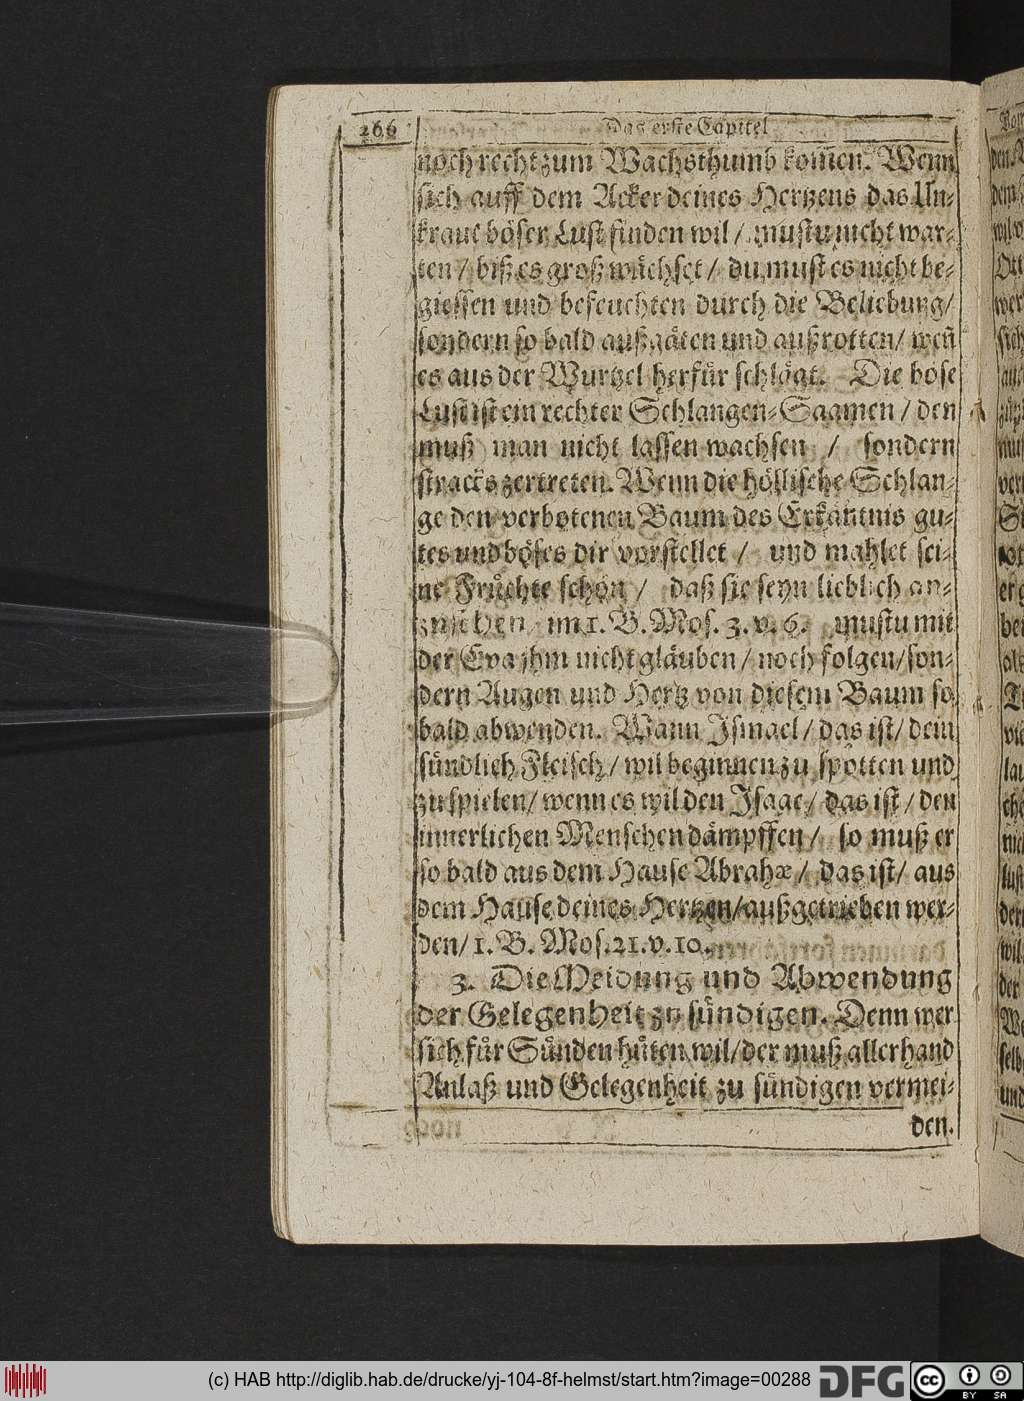 266 Das erste Capitel
noch recht zum Wachsthumb kom̃en. Wenn
sich auff dem Acker deines Hertzens das Un-
kraut böser Lust finden wil / mustu nicht war-
ten / biß es groß wächset / du must es nicht be-
giessen und befeuchten durch die Beliebung /
sondern so bald außgäten und außrotten / weñ
es aus der Wurtzel herfür schlägt. Die böse
Lust ist ein rechter Schlangen-Saamen / den
muß man nicht lassen wachsen / sondern
stracks zertreten. Wenn die höllische Schlan-
ge den verbotenen Baum des Erkäntnis gu-
tes und böses dir vorstellet / und mahlet sei-
ne Früchte schön / daß sie seyn lieblich an-
zusehen im 1. B. Mos. 3. v. 6. mustu mit
der Eva jhm nicht gläuben / noch folgen / son-
dern Augen und Hertz von diesem Baum so
bald abwenden. Wann Ismael / das ist / dein
sündlich Fleisch / wil beginnen zu spotten und
zu spielen / wenn es wil den Isaac / das ist / den
innerlichen Menschen dämpffen / so muß er
so bald aus dem Hause Abrahæ / das ist / aus
dem Hause deines Hertzen / außgetrieben wer-
den / 1. B. Mos. 21. v. 10.
3. Die Meidung und Abwendung
der Gelegenheit zu sündigen. Denn wer
sich für Sünden hüten wil / der muß allerhand
Anlaß und Gelegenheit zu sündigen vermei-
den.
(c) HAB http://diglib.hab.de/drucke/yj-104-8f-helmst/start.htm?image=00288
DFG
cc BY SA